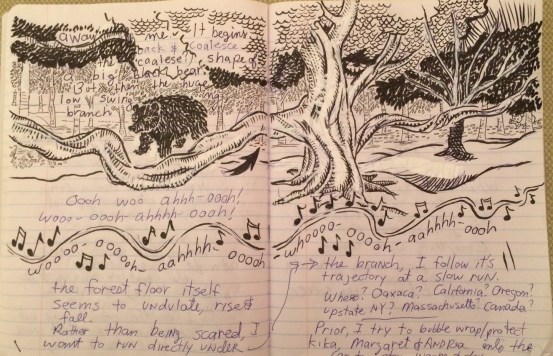 away
me. It begins
back & coalesce
the
(coalese), shaped
a big black bear.
But then the huge
low swing
branch
Oooh woo ahhh-oooh!
wooo-oooh-ahhhh-oooh!
whoooo- ooooh- aahhhh-ooooh
the forest floor itself
seems to undulate, rise &
fall.
Rather than being scared, I
want to run directly under
whoooo- ooooh- aahhhh-ooooh
the branch, I follow it's
trajectory at a slow run.
Where? Oaxaca? California? Oregon?
upstate NY? Massachusetts? Canada?
Prior, I try to bubble wrap/protect
Kika, Margaret & Andrea onto the